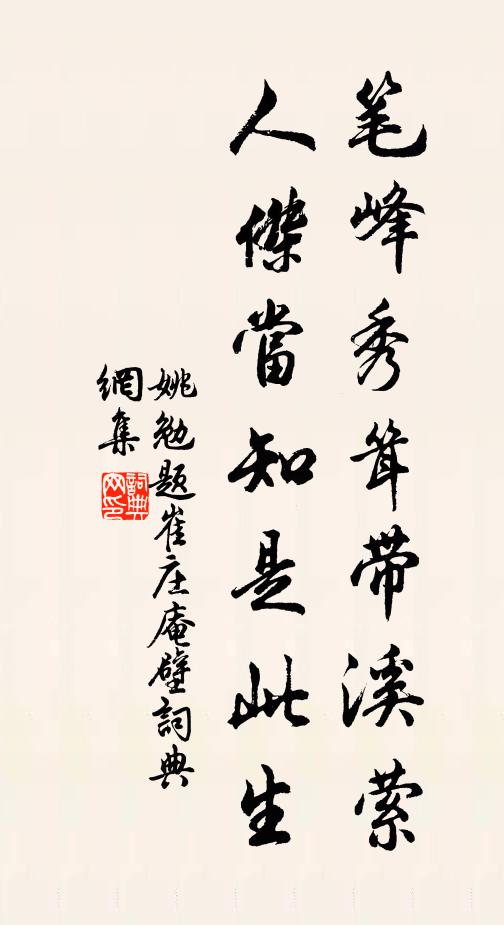 笔峰秀耸带溪萦
人傑當知是此生
姚勉题崔庄庵壁詞典
網集
詞典网印